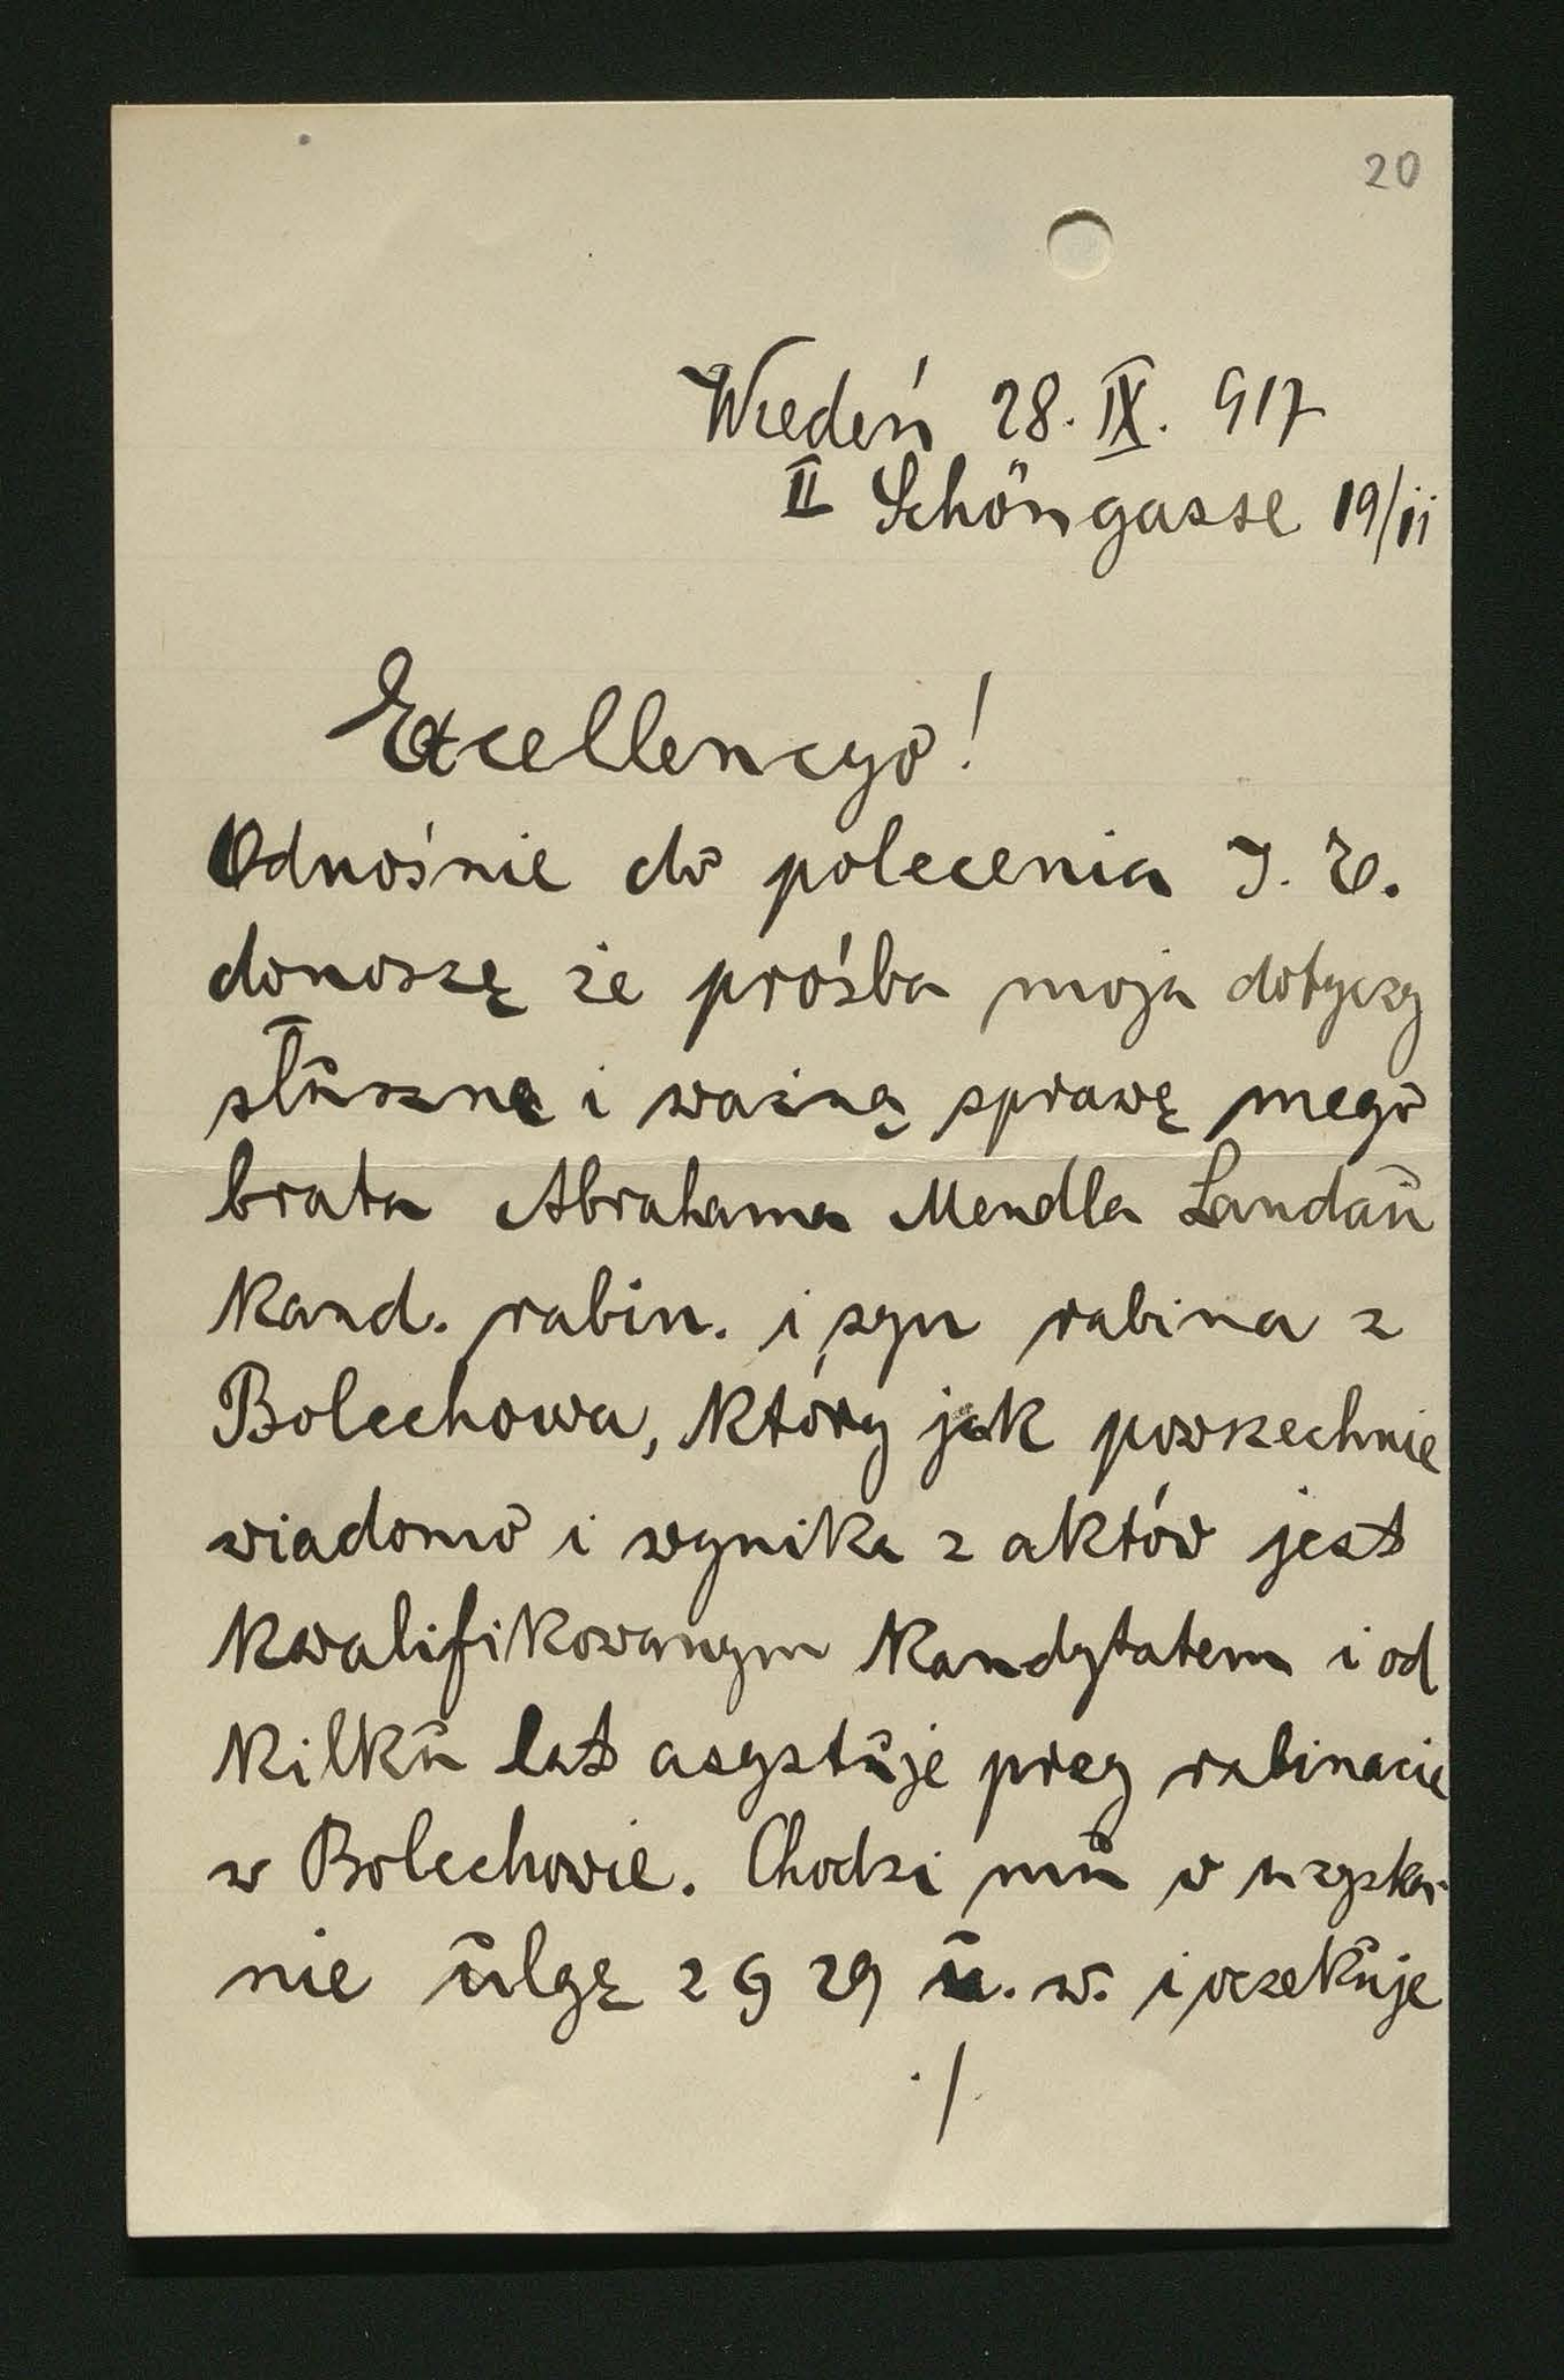 20
Wiedeń 28. IX. 917
II Schöngasse 19/ii
Excellencyo!
Odnośnie do polecenia J. E.
donoszę że prośba moja dotyczy
słuszne i ważną sprawę mego
brata Abrahama Mendla Landau
Kand. rabin. i syn rabina z
Bolechowa, który jak powszechnie
wiadomo i wynika z aktów jest
kwalifikowanym kandytatem i od
kilku lat asystuje przy rabinacie
w Bolechowie. Chodzi mu o uzyska-
nie ulgę z § 29 u. w. i oczekuje
./.